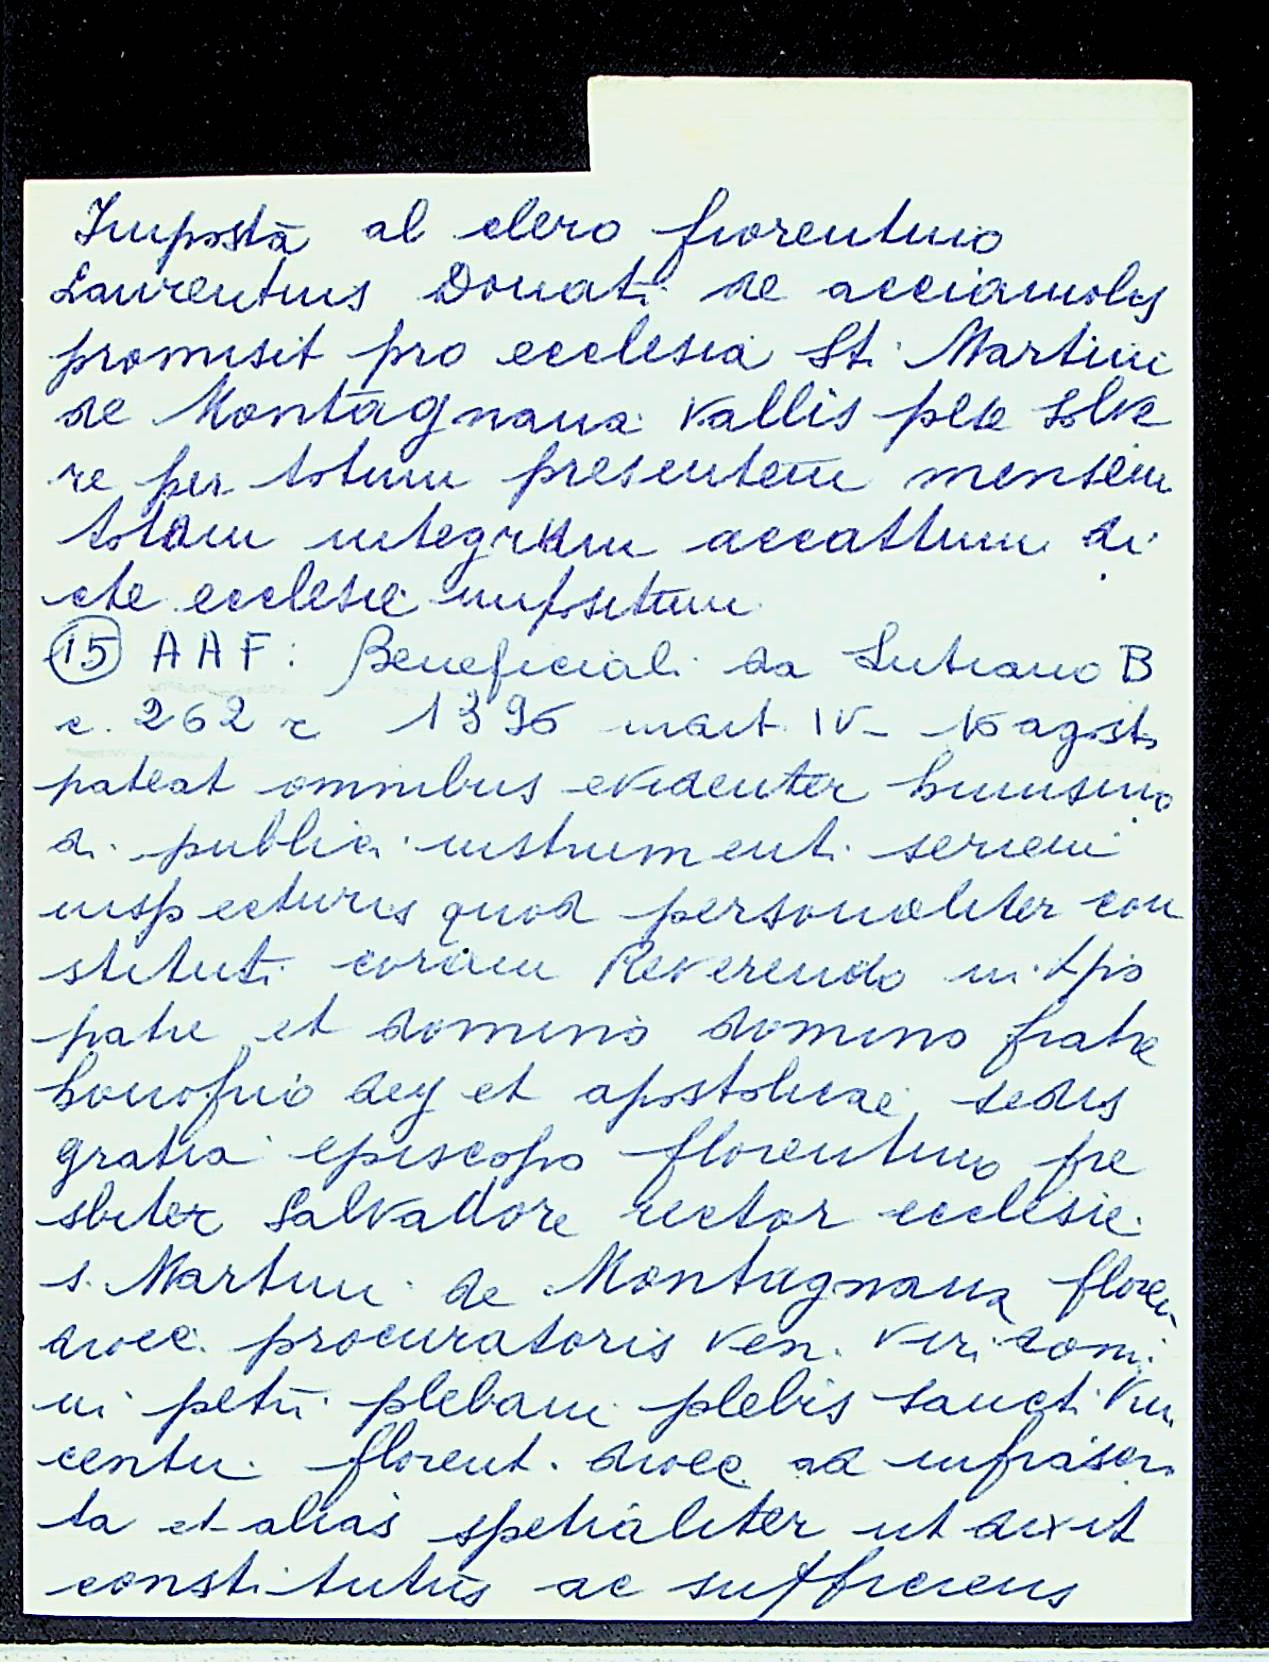 Imposta al clero fiorentino
Laurentius Donati de acciaiuolis
promisit pro ecclesia Sti Martini
de Montagnana Vallis pese Solve
re per totum presentem mensem
totum integrum accattum di
cte ecclesie impositum
(15) AAF: Beneficiali da Lutiano B
c. 262 r 1396 mart. IV - 16 agosto
pateat omnibus evidenter huiusmo
di publici instrumenti seriem
inspecturis quod personaliter con
stituti coram Reverendo in Xpo
patre et domino domino fratre
honofrio dey et apostolicae sedis
gratia episcopo florentino pre
sbiter Salvadore rector ecclesie
s. Martini de Montagnana floren
dioec. procuratoris ven. viri domi
ni petri plebani plebis sancti Vin
centii florent. dioec ad infrascri
ta et alias spetialiter ut dixit
constitutus ac sufficiens